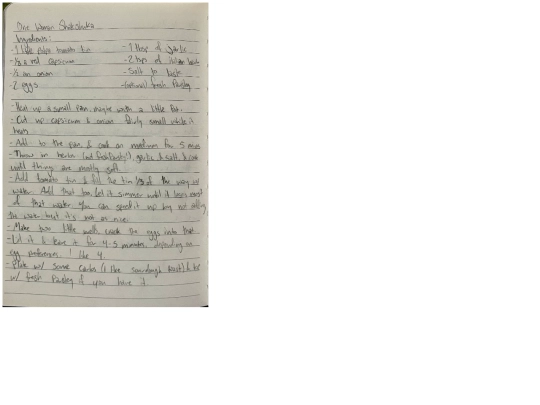 One Woman Shakshuka
Ingredients:
- 1 tin tomato
- 1 tbsp of garlic
- 1/2 a red capsicum
- 2 tbsp of Italian herbs
- 1/2 an onion
- Salt to taste
- 2 eggs
- optional fresh Parsley
- Heat up a small pan, maybe with a little fat.
- Cut up capsicum & onion fairly small while it heats
- Add to the pan & cook on medium for 5 mins
- Throw in herbs (not fresh Parsley!) garlic & salt & cook
until things are mostly soft.
- Add tomato tin & fill the tin 1/3 of the way w/
water. Add that too. Let it simmer until it loses most
of that water. You can speed it up by not adding
the water but it's not as nice.
- Make two little wells, crack the eggs into that
- Lid it & leave it for 4-5 minutes depending on
egg preference. I like 4.
- Plate w/ some carbs (I like sourdough toast) & top
w/ fresh Parsley if you have it